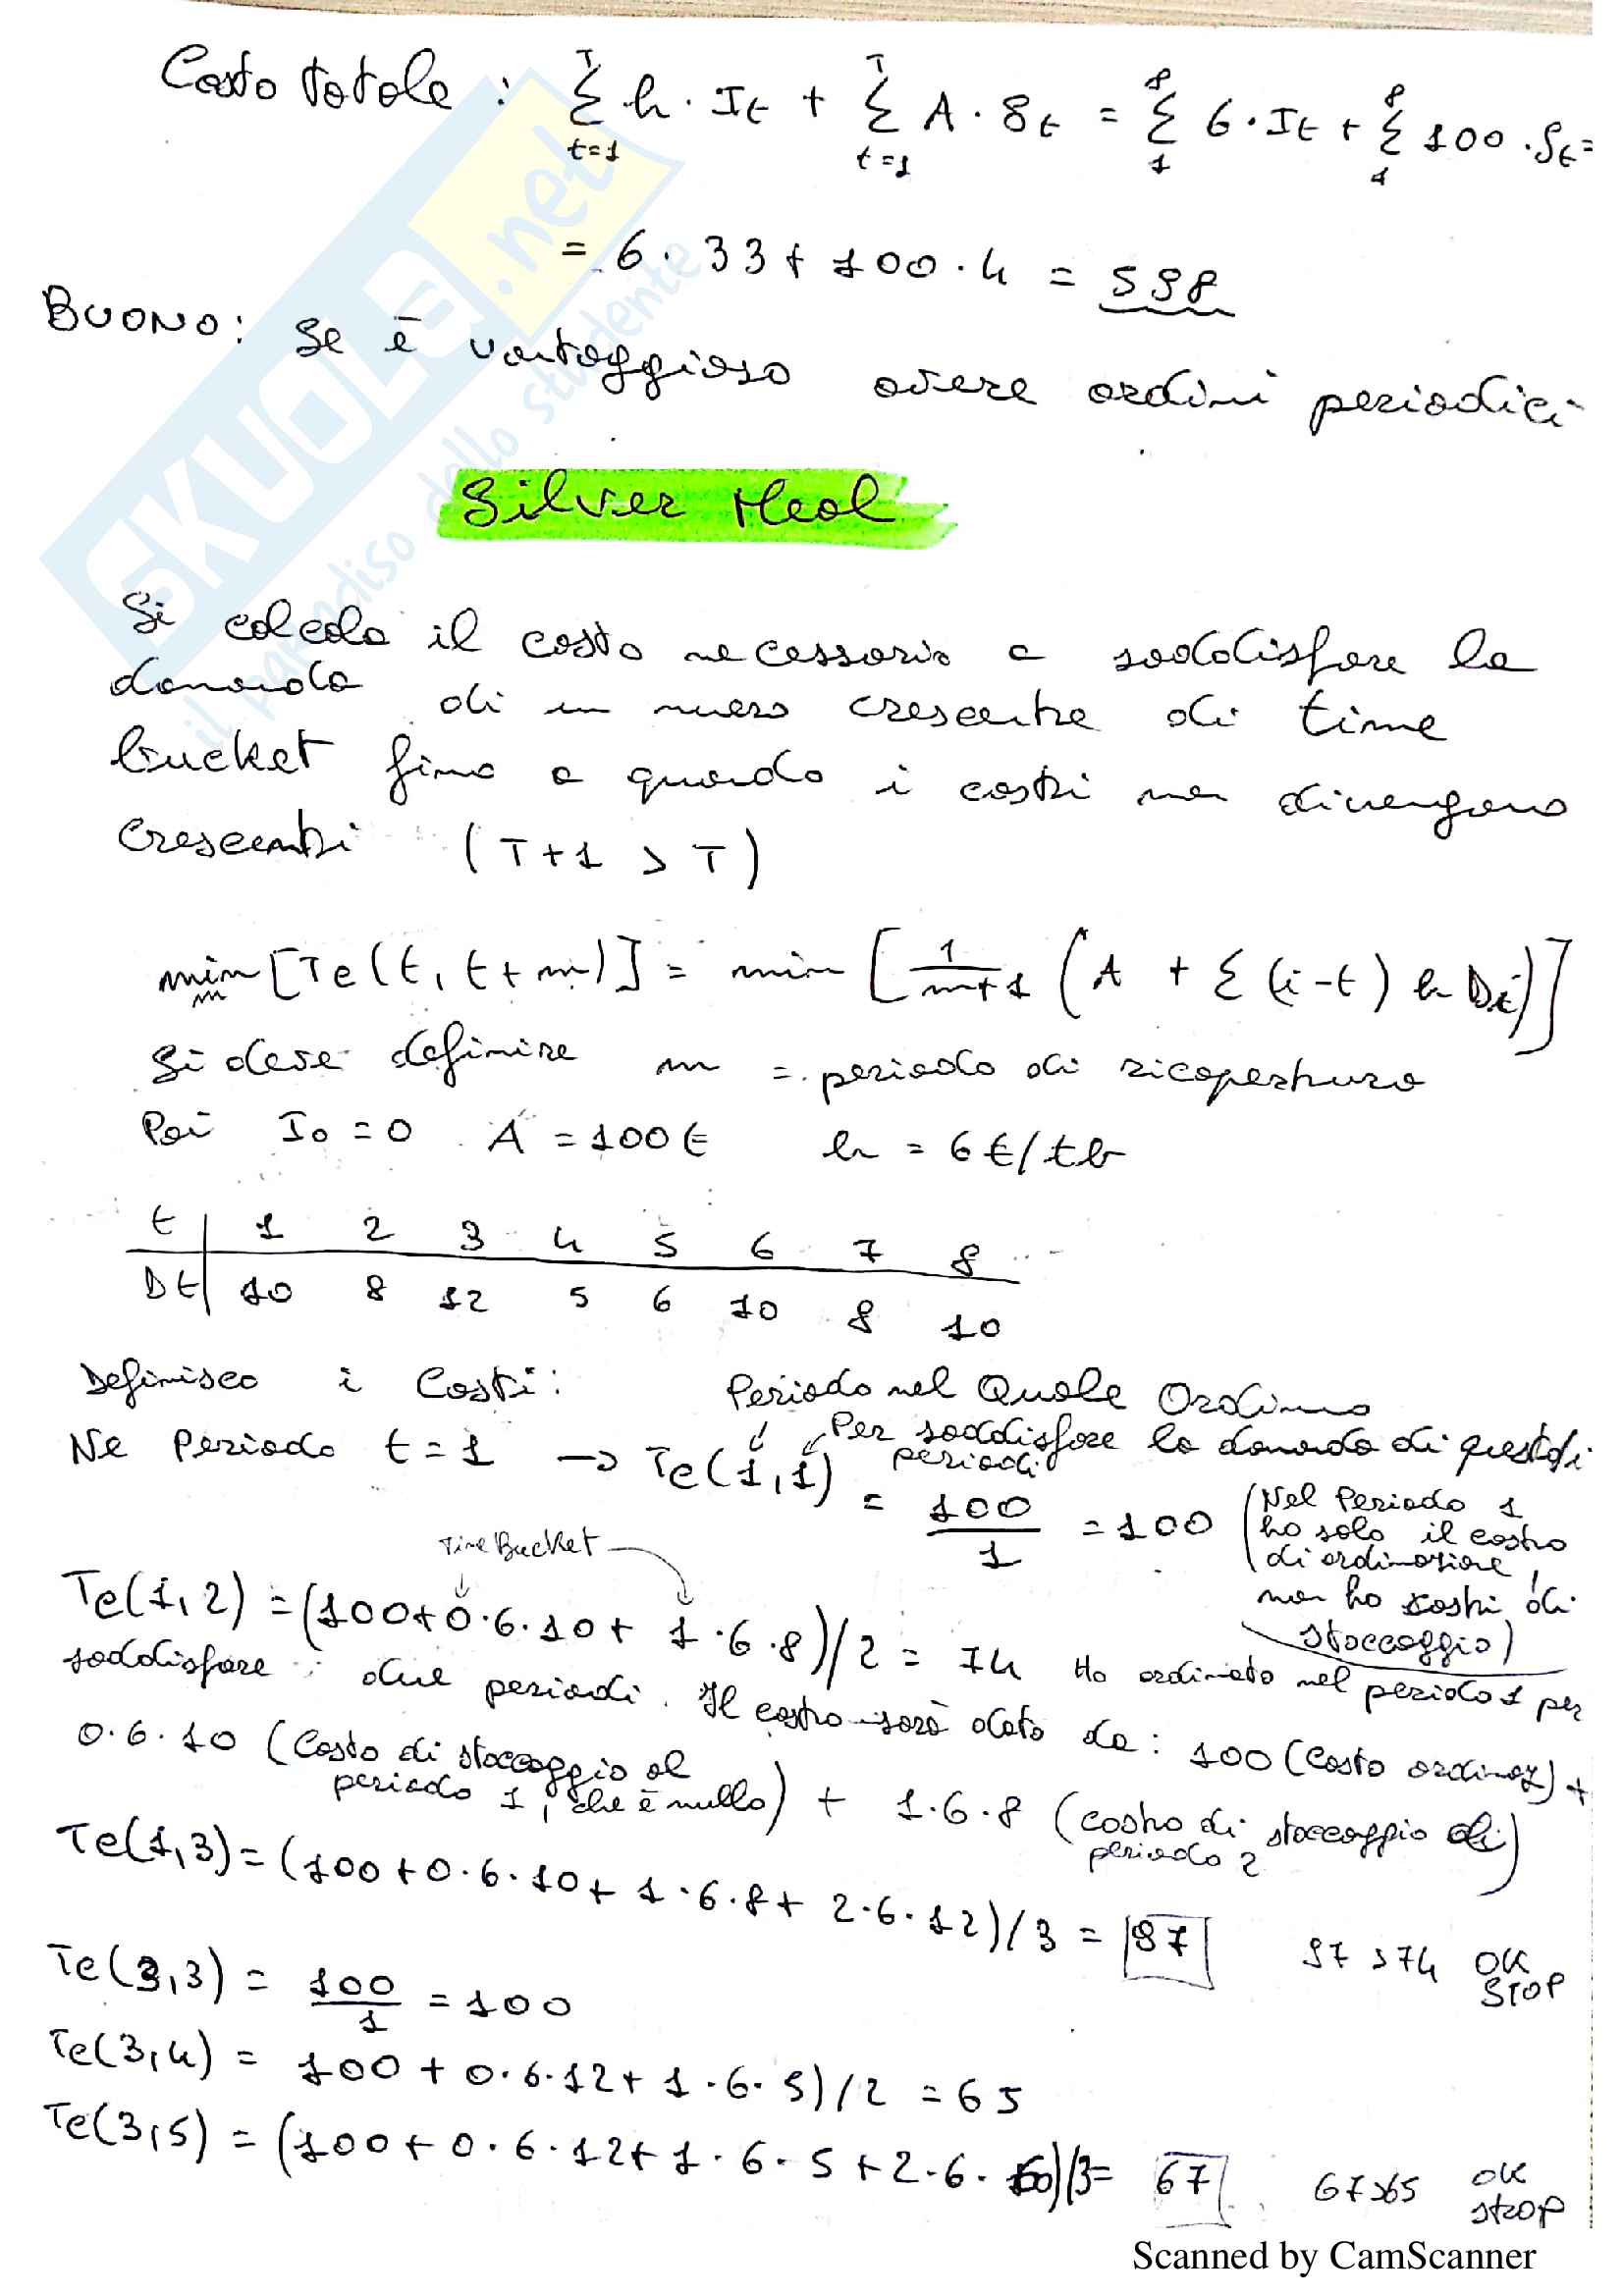 Costo totale : Σ t=1 T h · It + Σ t=1 T A · δt = Σ 1 8 6 · It + Σ 1 8 100 · δt =
= 6 · 33 + 100 · 4 = 598
BUONO: Se è vantaggioso avere ordini periodici
Silver Meal
Si calcola il costo necessario a soddisfare la
domanda di un numero crescente di time
bucket fino a quando i costi non divengono
crescenti (T+1 > T)
min m [Tc(t, t+m)] = min [1/m+1 (A + Σ (i-t) h Di)]
Si deve definire m = periodo di ricopertura
Poi I0 = 0 A = 100 € h = 6 €/tb
t | 1 2 3 4 5 6 7 8
Dt | 10 8 12 5 6 10 8 10
Definisco i Costi: Periodo nel Quale Ordino
Per soddisfare la domanda di questi
periodi
Ne Periodo t = 1 → Tc(1,1) = 100/1 = 100 (Nel Periodo 1
ho solo il costo
di ordinazione,
non ho costi di
stoccaggio)
Time Bucket
Tc(1,2) = (100+0·6·10+ 1·6·8)/2 = 74 Ho ordinato nel periodo 1 per
soddisfare due periodi. Il costo sarà dato da: 100 (Costo ordinaz) +
0·6·10 (Costo di stoccaggio al
periodo 1, che è nullo) + 1·6·8 (costo di stoccaggio di
periodo 2)
Tc(1,3) = (100+0·6·10+ 1·6·8+ 2·6·12)/3 = 97 97 > 74 OK
STOP
Tc(3,3) = 100/1 = 100
Tc(3,4) = 100 + 0·6·12+ 1·6·5)/2 = 65
Tc(3,5) = (100+ 0·6·12+ 1·6·5+2·6·6)/3= 67 67>65 OK
STOP
SKUOLA.net
il paradiso dello studente
Scanned by CamScanner